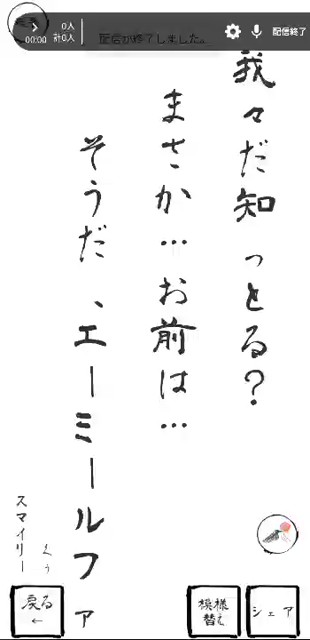 0人
計0人
00:00
配信が終了しました。
配信終了
我々だ知っとる?
まさか…お前は…
そうだ、エーミールファ
くぅ
スマイリー
戻る
←
模様替え
シェア